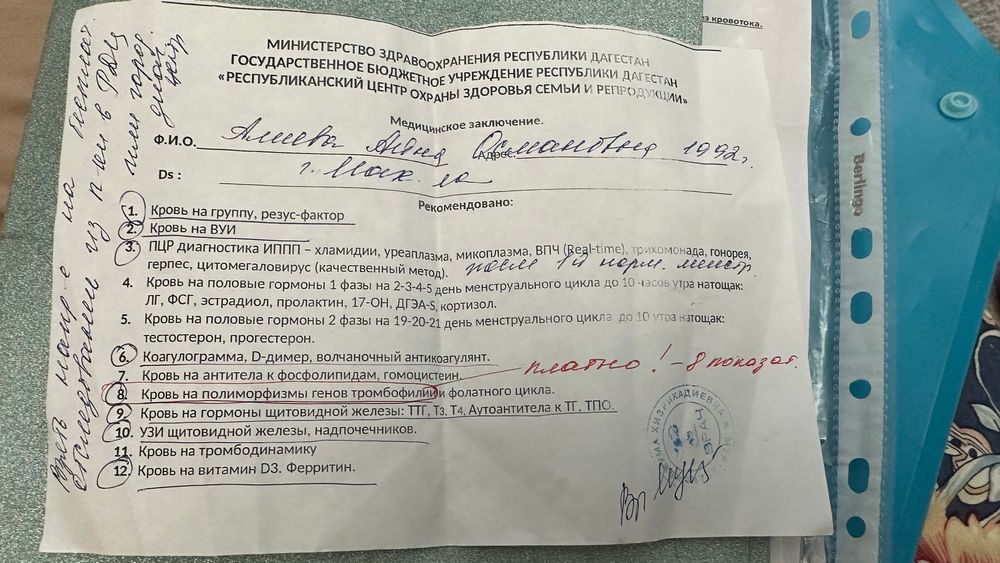 ез кровотока.
МИНИСТЕРСТВО ЗДРАВООХРАНЕНИЯ РЕСПУБЛИКИ ДАГЕСТАН
ГОСУДАРСТВЕННОЕ БЮДЖЕТНОЕ УЧРЕЖДЕНИЕ РЕСПУБЛИКИ ДАГЕСТАН
«РЕСПУБЛИКАНСКИЙ ЦЕНТР ОХРАНЫ ЗДОРОВЬЯ СЕМЬИ И РЕПРОДУКЦИИ»
Медицинское заключение.
Ф.И.О. Алиева Османовна 1992г.
Адрес:
г. Мах-ла
Ds :
Рекомендовано:
1. Кровь на группу, резус-фактор
2. Кровь на ВУИ
3. ПЦР диагностика ИППП – хламидии, уреаплазма, микоплазма, ВПЧ (Real-time), трихомонада, гонорея,
герпес, цитомегаловирус (качественный метод). после 1й норм. менстр.
4. Кровь на половые гормоны 1 фазы на 2-3-4-5 день менструального цикла до 10 часов утра натощак:
ЛГ, ФСГ, эстрадиол, пролактин, 17-ОН, ДГЭА-S, кортизол.
5. Кровь на половые гормоны 2 фазы на 19-20-21 день менструального цикла до 10 утра натощак:
тестостерон, прогестерон.
6. Коагулограмма, D-димер, волчаночный антикоагулянт.
7. Кровь на антитела к фосфолипидам, гомоцистеин.
платно! - 8 показат.
8. Кровь на полиморфизмы генов тромбофилии и фолатного цикла.
9. Кровь на гормоны щитовидной железы: ТТГ, Т3, Т4, Аутоантитела к ТГ, ТПО.
10. УЗИ щитовидной железы, надпочечников.
11. Кровь на тромбодинамику
12. Кровь на витамин D3. Ферритин.
ВРАЧ
Взять напр-е на беспл.
обследования из п-ки в РДЦ
или город.
центр
Berlingo